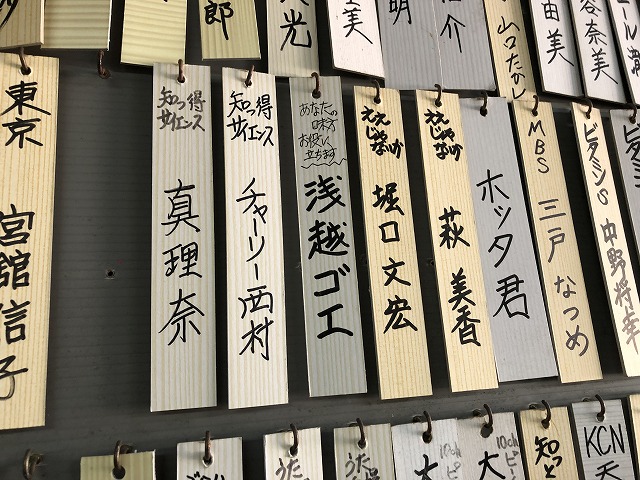 郎
光
美
明
介
山口たかし
由美
谷奈美
東京
宮舘信子
知っ得
サイエンス
真理奈
知っ得
サイエンス
チャーリー西村
あなたの
味方
お役に
立ちます
浅越ゴエ
ええ
じゃ
ないか
堀口文宏
ええ
じゃ
ないか
萩美香
ホッタ君
MBS
三戸なつめ
ビタミンS
中野将幸
うた
うた
大
10ch
ピ
大
10ch
ピー
知っ
KCN
天